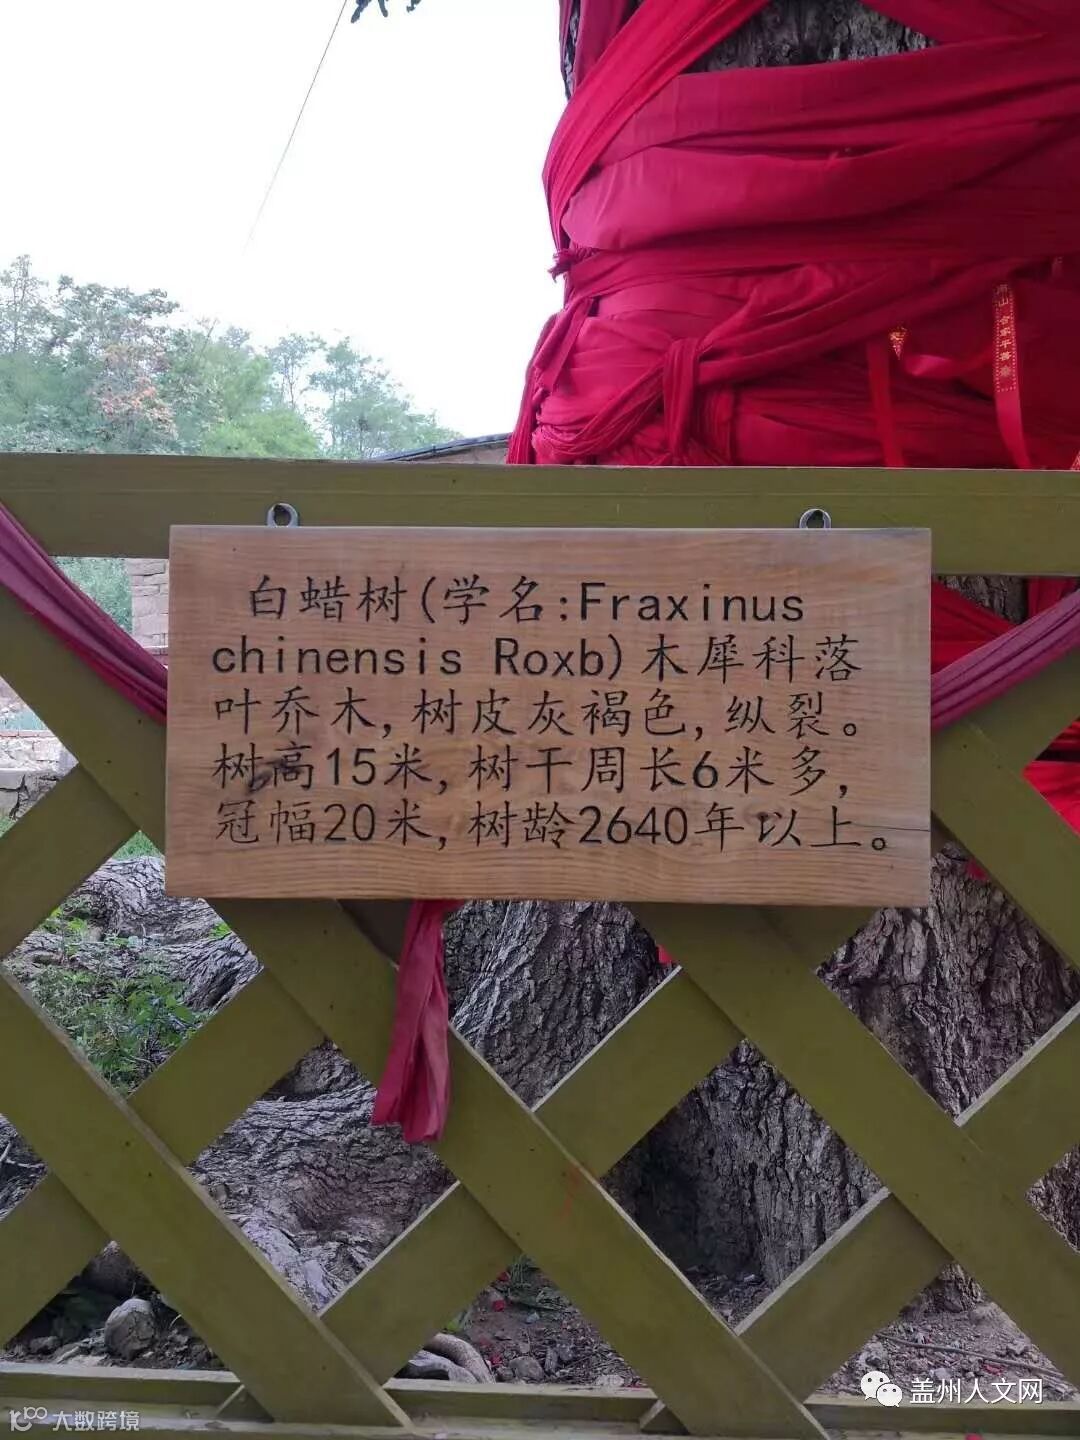 南山
合家平善
白蜡树(学名:Fraxinus
chinensis Roxb)木犀科落
叶乔木,树皮灰褐色,纵裂。
树高15米,树干周长6米多,
冠幅20米,树龄2640年以上。
盖州人文网
大数跨境